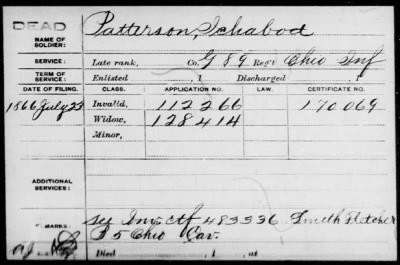 DEAD
NAME OF SOLDIER: Patterson, Ichabod
SERVICE: Late rank, Co. G 89 Reg't Ohio Inf
TERM OF SERVICE: Enlisted , 1 Discharged , 1
DATE OF FILING. CLASS. APPLICATION NO. CERTIFICATE NO.
1866 July 23 Invalid, 112266 170069
Widow, 128414
Minor,
ADDITIONAL SERVICES:
REMARKS: See Inv. Ctf 483536 Smith Fletcher
F 5 Ohio Cav.
Died , 1 , at